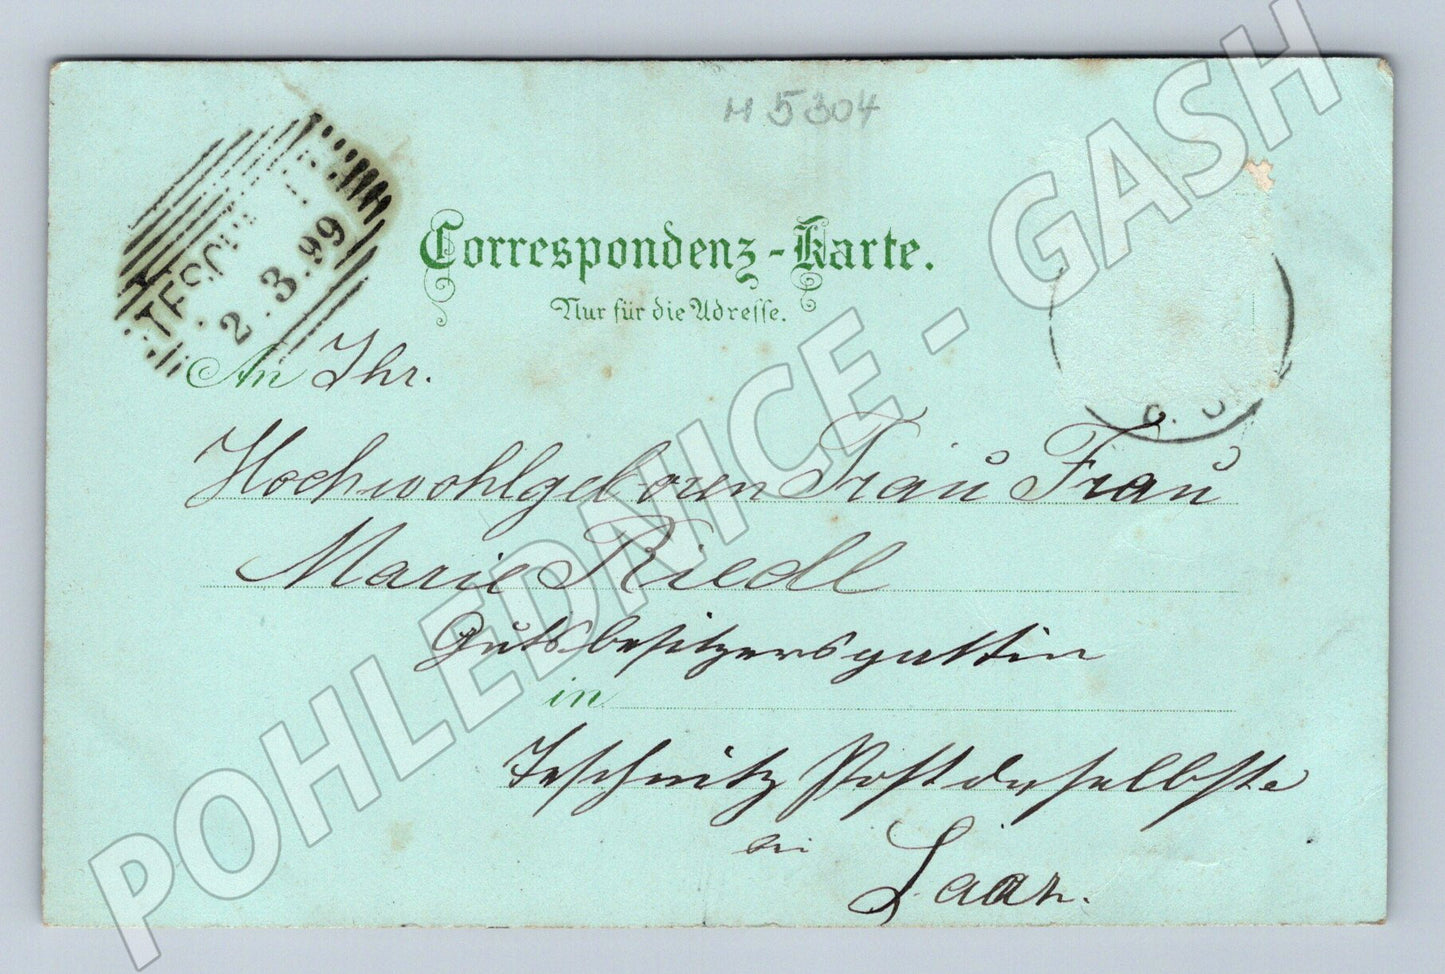 M 5304
TESCH
2.3.99
Correspondenz-Karte.
Nur für die Adresse.
An Ihr.
Hochwohlgeboren Frau Frau
Marie Riedl
Gutsbesitzersgattin
in
Teschnitz Post daselbste
bei
Saaz.
POHLEDNICE - GASH